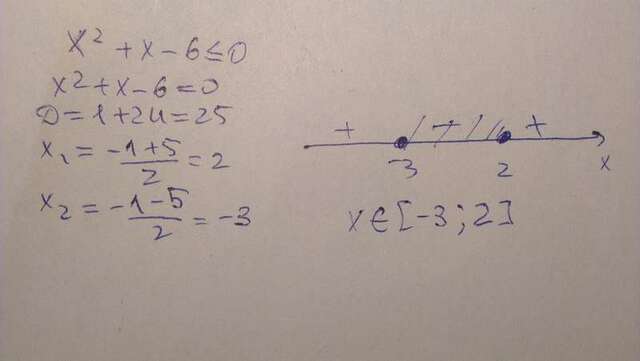 x² + x - 6 ≤ 0
x² + x - 6 = 0
D = 1 + 24 = 25
x₁ = (-1+5)/2 = 2
x₂ = (-1-5)/2 = -3
+ - +
-3 2 x
x ∈ [-3; 2]